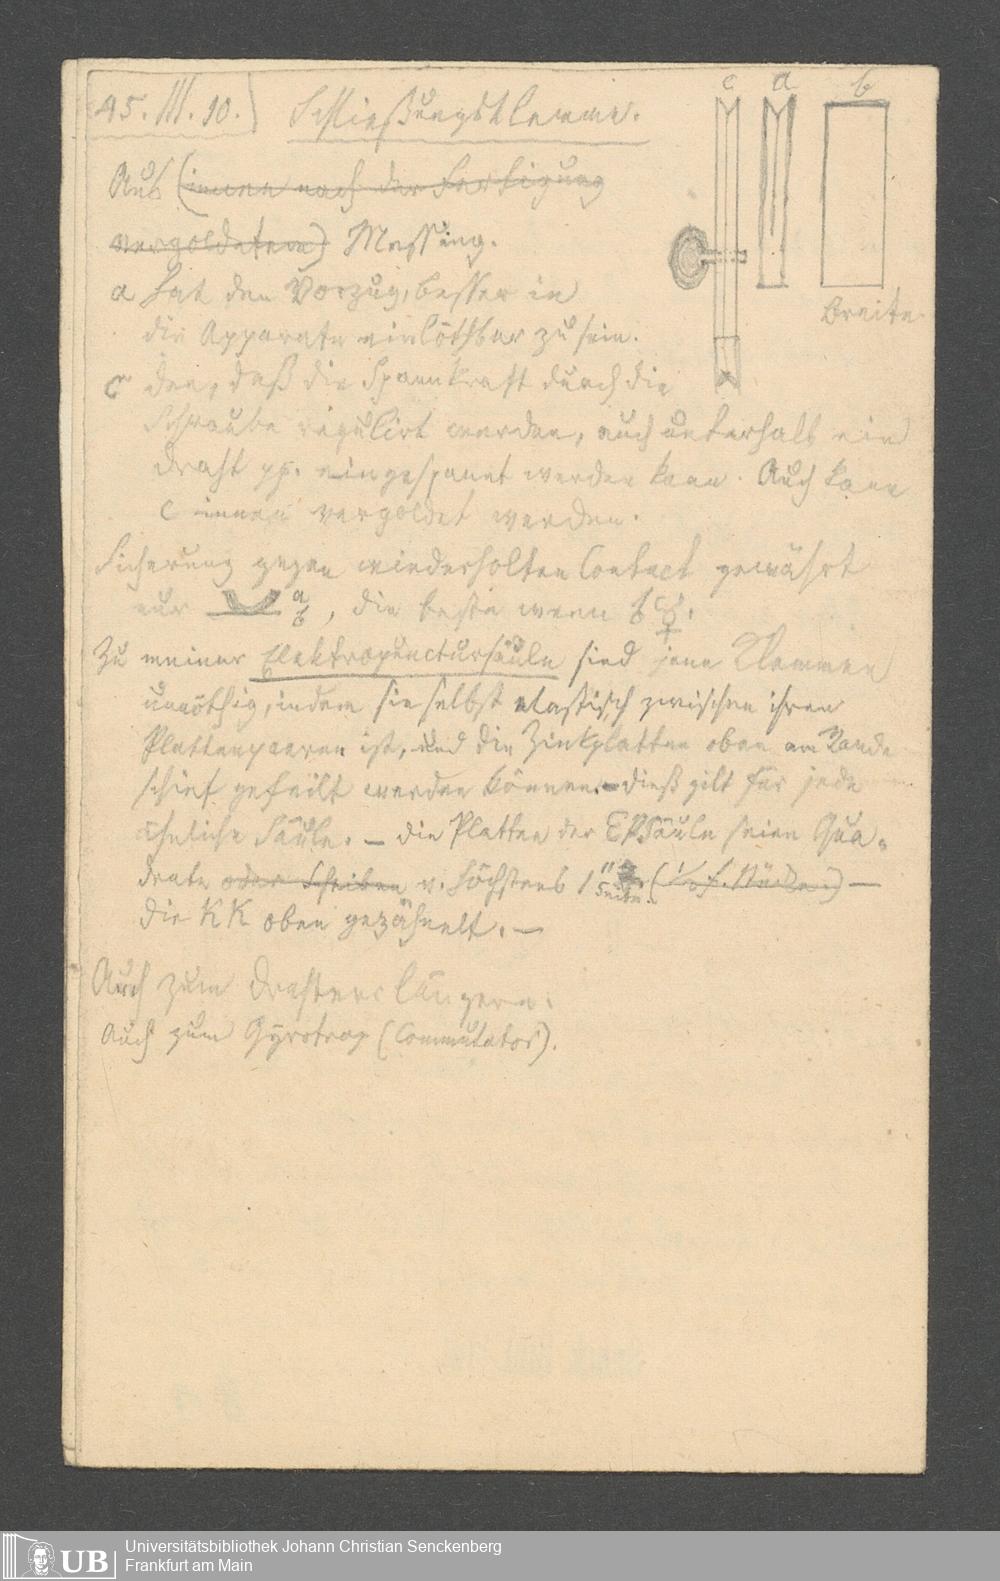 45. III. 10. Schließungsklemme.
c a b
Aus (innen nach der Fertigung
vergoldetem) Messing.
a hat den Vorzug, besser in
die Apparate einlöthbar zu sein.
Breite
c den, daß die Spannkraft durch die
Schraube regulirt werden, auch unterhalb ein
Draht pp. eingespannt werden kann. Auch kann
c innen vergoldet werden.
Sicherung gegen wiederholten Contact gewährt
nur a b, die beste wenn b
Zu meiner Elektropunctursäule sind jene Klemmen
unnöthig, indem sie selbst elastisch zwischen ihren
Plattenpaaren ist, und die Zinkplatten oben am Rande
schief gefeilt werden können – dieß gilt für jede
ähnliche Säule. – Die Platten der EPSäule seien Qua-
drate oder Scheiben v. höchstens 1" Seite. –
die KK oben gezähnelt. –
Auch zum Drahtverlängern.
Auch zum Gyrotrop (Commutator).
UB Universitätsbibliothek Johann Christian Senckenberg
Frankfurt am Main